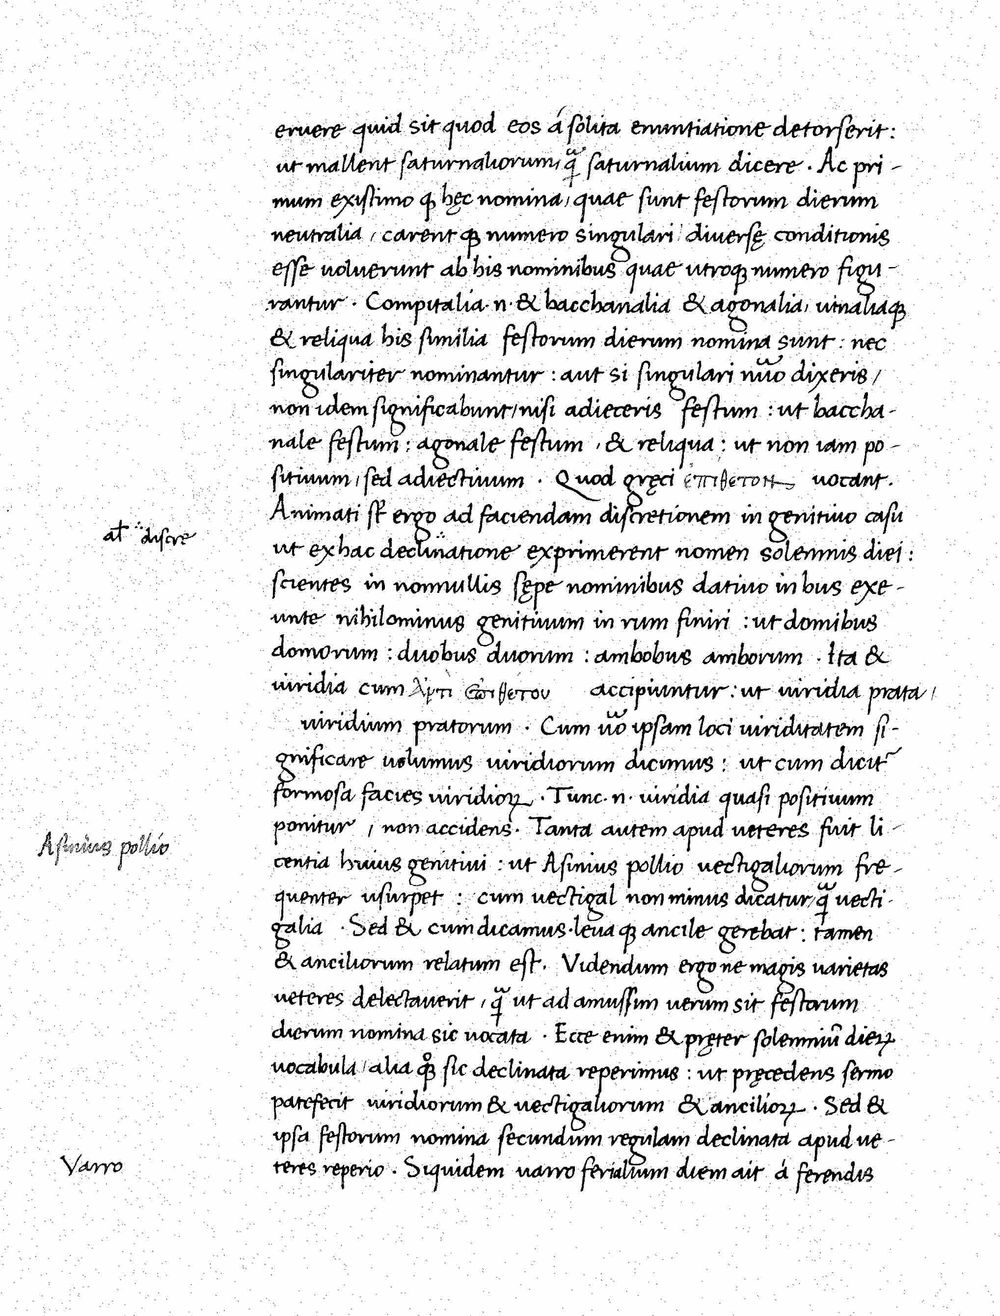 eruere quid sit quod eos á solita enuntiatione detorserit:
ut mallent saturnaliorum, q̃ saturnalium dicere. Ac pri-
mum existimo ꝙ hęc nomina, quae sunt festorum dierum
neutralia, carentꝙ numero singulari: diversę conditionis
esse voluerunt ab his nominibus quae utroqꝫ numero figu-
rantur. Compitalia.n. & bacchanalia & agonalia, vinaliaqꝫ
& reliqua his similia festorum dierum nomina sunt: nec
singulariter nominantur: aut si singulari nũo dixeris,
non idem significabunt, nisi adieceris festum: ut baccha-
nale festum: agonale festum, & reliqua: ut non iam po-
sitivum, sed adiectivum. Quod gręci ἐπιθετον vocant.
Animati sť ergo ad faciendam discretionem in genitivo casu
al̃ discre
ut ex hac declinatione exprimerent nomen solemnis diei:
scientes in nonnullis sępe nominibus dativo in bus exe-
unte nihilominus genitivum in rum finiri: ut domibus
domorum: duobus duorum: ambobus amborum. Ita &
viridia cum ἀντὶ ἐπιθετου accipiuntur: ut viridia prata,
viridium pratorum. Cum ũo ipsam loci viriditatem si-
gnificare volumus viridiorum dicimus: ut cum dicit᷑
formosa facies viridioꝝ. Tunc.n. viridia quasi positivum
ponitur, non accidens. Tanta autem apud veteres fuit li-
Asinius pollio
centia huius genitivi: ut Asinius pollio vectigaliorum fre-
quenter usurpet: cum vectigal non minus dicatur, q̃ vecti-
galia. Sed & cum dicamus. levaqꝫ ancile gerebat: tamen
& anciliorum relatum est. Videndum ergo ne magis varietas
veteres delectaverit, q̃ ut ad amussim verum sit festorum
dierum nomina sic vocata. Ecce enim & pręter solemniũ dieꝝ
vocabula, alia qꝫ̊ sic declinata reperimus: ut pręcedens sermo
patefecit viridiorum & vectigaliorum & ancilioꝝ. Sed &
ipsa festorum nomina secundum regulam declinata apud ve-
Varro
teres reperio. Siquidem varro ferialium diem ait á ferendis